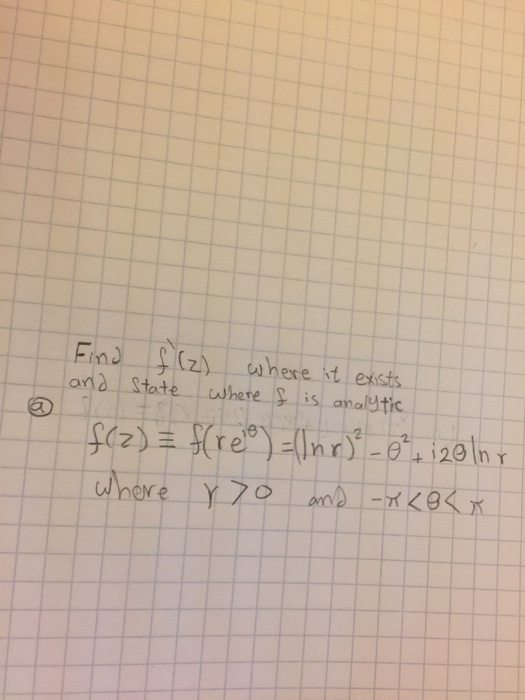 Find f`(z) where it exists
and state where f is analytic
ⓐ
f(z) ≡ f(re^{iθ}) = (ln r)² - θ² + i2θ ln r
where r > 0 and -π < θ < π